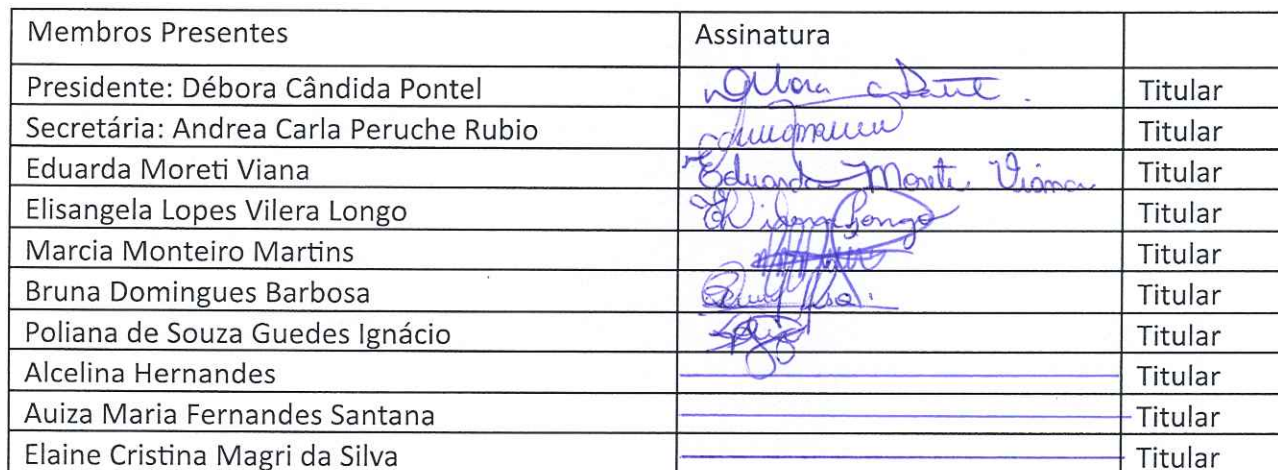 Membros Presentes Assinatura
Presidente: Débora Cândida Pontel Titular
Secretária: Andrea Carla Peruche Rubio Titular
Eduarda Moreti Viana Eduarda Moreti Viana Titular
Elisangela Lopes Vilera Longo Longo Titular
Marcia Monteiro Martins Titular
Bruna Domingues Barbosa Titular
Poliana de Souza Guedes Ignácio Titular
Alcelina Hernandes Titular
Auiza Maria Fernandes Santana Titular
Elaine Cristina Magri da Silva Titular